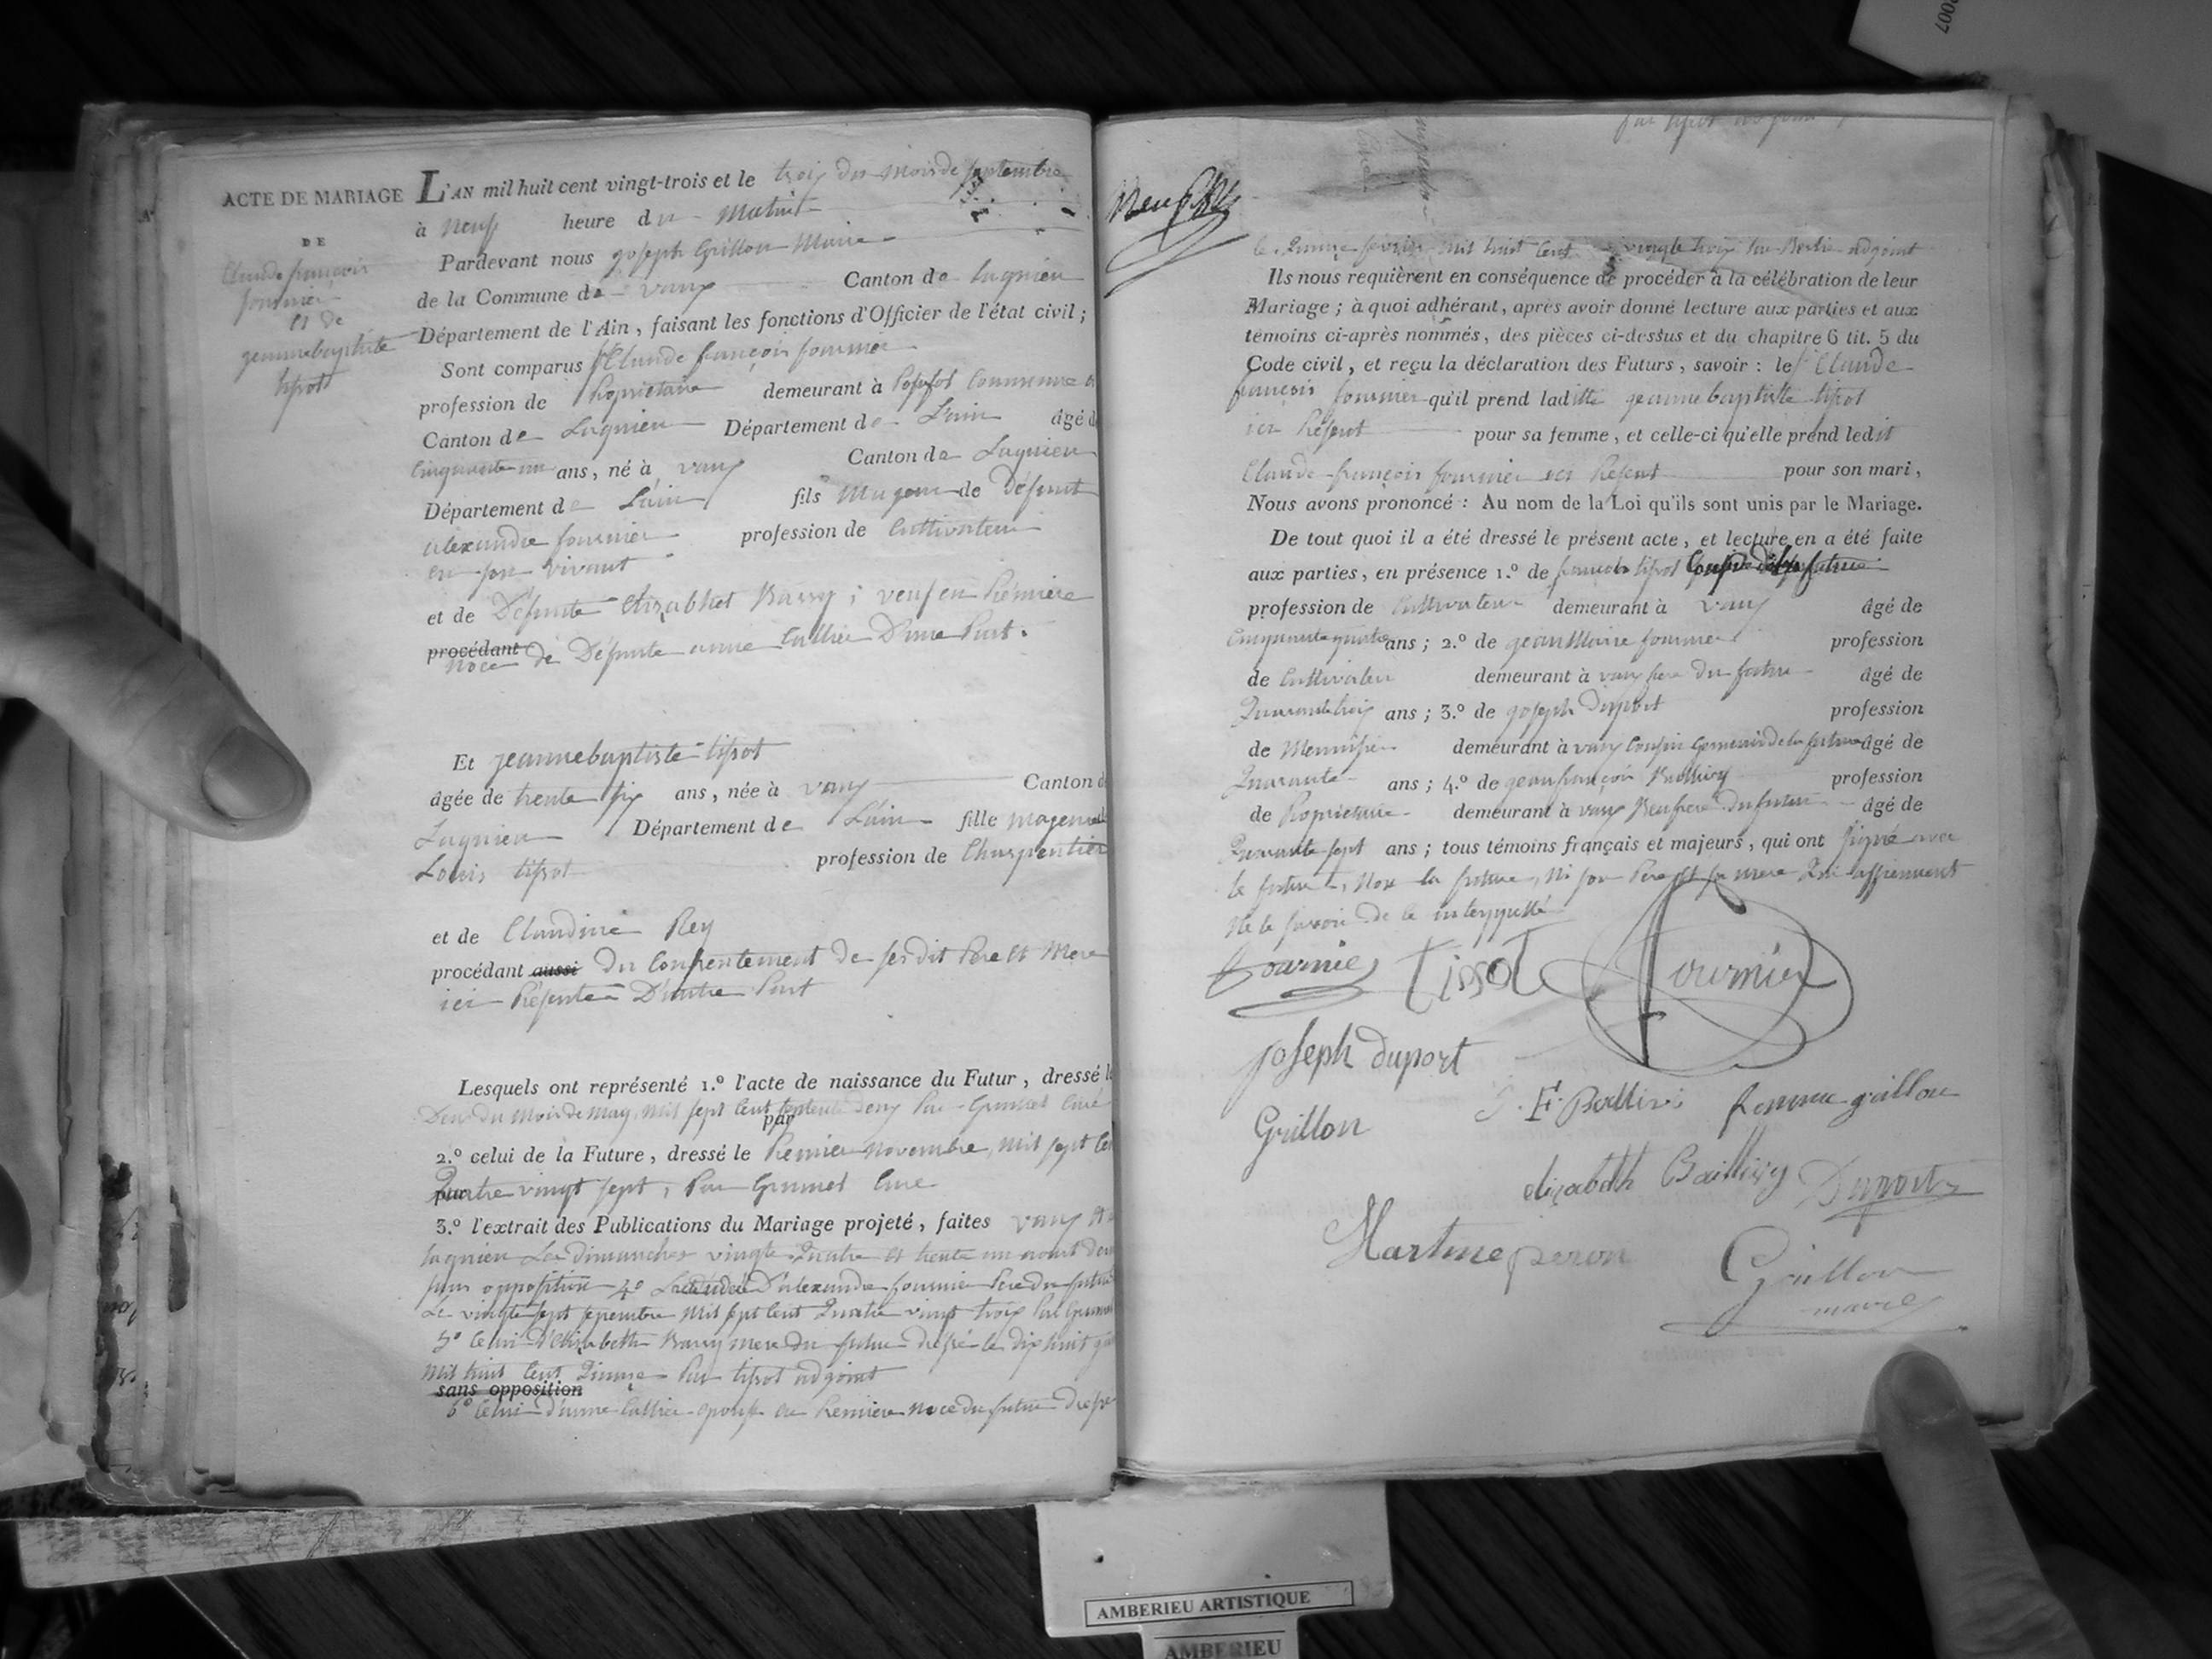 ACTE DE MARIAGE
DE
Claude françois
fournier
et de
jeanne baptiste
tissot
L'AN mil huit cent vingt-trois et le trois du mois de septembre
à neuf heure du matin
Pardevant nous joseph Grillon Maire
de la Commune de vaux Canton de lagnieu
Département de l'Ain, faisant les fonctions d'Officier de l'état civil ;
Sont comparus Sr Claude françois fournier
profession de Propriétaire demeurant à Commune
Canton de Lagnieu Département de L'ain âgé d
Cinquante un ans, né à vaux Canton de Lagnieu
Département de L'ain fils Majeur de Défunt
alexandre fournier profession de Cultivateur
en son vivant
et de Défunte Elizabhet Barry ; veuf en Première
procédant
noce de Défunte anne D'une Part.
Et jeanne baptiste tissot
âgée de trente six ans, née à vaux Canton d
Lagnieu Département de L'ain fille majeure
Louis tissot profession de Charpentier
et de Claudine Rey
procédant aussi du Consentement de ses dit Pere et Mere
ici Présente D'autre Part
Lesquels ont représenté 1.° l'acte de naissance du Futur, dressé l
Deux du Mois de May, mil sept Cent septente Deux Par Grumet Curé
par
2.° celui de la Future, dressé le Premier novembre, mil sept Cen
par
Quatre vingt sept, Par Grumet Curé
3.° l'extrait des Publications du Mariage projeté, faites vaux et
lagnieu Les dimanches vingt Quatre et trente un aout
sans opposition 4° D'alexandre fournier Pere du futur
Le vingt sept septembre mil sept Cent Quatre vingt trois Par Grumet
5° Celui d'Elizabeth Barry mere du futur dressé le dix huit
mil huit Cent Quinze Par tissot adjoint
sans opposition
6° Celui d'anne épouse en Premiere noce du futur dressé
Neuf
le Quinze février mil huit Cent vingt trois adjoint
Ils nous requièrent en conséquence de procéder à la célébration de leur
Mariage ; à quoi adhérant, après avoir donné lecture aux parties et aux
témoins ci-après nommés, des pièces ci-dessus et du chapitre 6 tit. 5 du
Code civil, et reçu la déclaration des Futurs, savoir : le Sr Claude
françois fournier qu'il prend laditte jeanne baptiste tissot
ici Présent pour sa femme, et celle-ci qu'elle prend ledit
Claude françois fournier ici Présent pour son mari,
Nous avons prononcé : Au nom de la Loi qu'ils sont unis par le Mariage.
De tout quoi il a été dressé le présent acte, et lecture en a été faite
aux parties, en présence 1.° de françois tissot Cousin de la future
profession de Cultivateur demeurant à vaux âgé de
Cinquante quatre ans ; 2.° de jean Marie fournier profession
de Cultivateur demeurant à vaux frere du futur âgé de
Quarante trois ans ; 3.° de joseph Duport profession
de Menuisier demeurant à vaux Cousin Germain de la future âgé de
Quarante ans ; 4.° de jean françois Baillivy profession
de Propriétaire demeurant à vaux Beaufrere du futur âgé de
Quarante sept ans ; tous témoins français et majeurs, qui ont signé avec
le futur, non la future, ni son Pere et sa mere Qui affirment
Ne le savoir de ce interppellé
fournier Tissot fournier
joseph duport
Grillon J. F. Baillivi femme grillon
elizabeth Baillivy Duport
Martine peron
Grillon
maire
AMBERIEU ARTISTIQUE
AMBERIEU